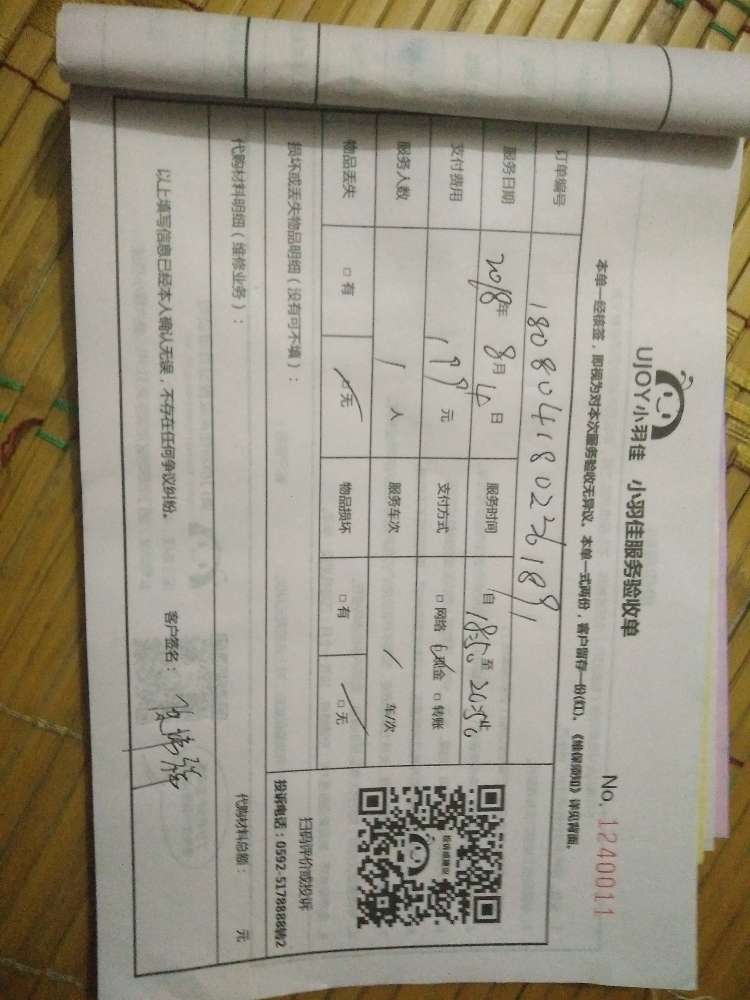 UJOY小羽佳 小羽佳服务验收单
No. 1240011
本单一经核签，即视为对本次服务验收无异议。本单一式两份，客户留存一份(红)。《维保须知》详见背面。
订单编号
服务日期 2018年 8月 4日 服务时间 自 1850 至
支付费用 199 元 支付方式 □ 网络 现金 □ 转账
服务人数 1 人 服务车次 / 车/次
物品丢失 □ 有 □ 无 物品损坏 □ 有 □ 无
投诉或建议
扫码评价或投诉
投诉电话：0592-5178888转2
损坏或丢失物品明细（没有可不填）：
代购材料明细（维修业务）： 代购材料总额： 元
以上填写信息已经本人确认无误，不存在任何争议纠纷。 客户签名：